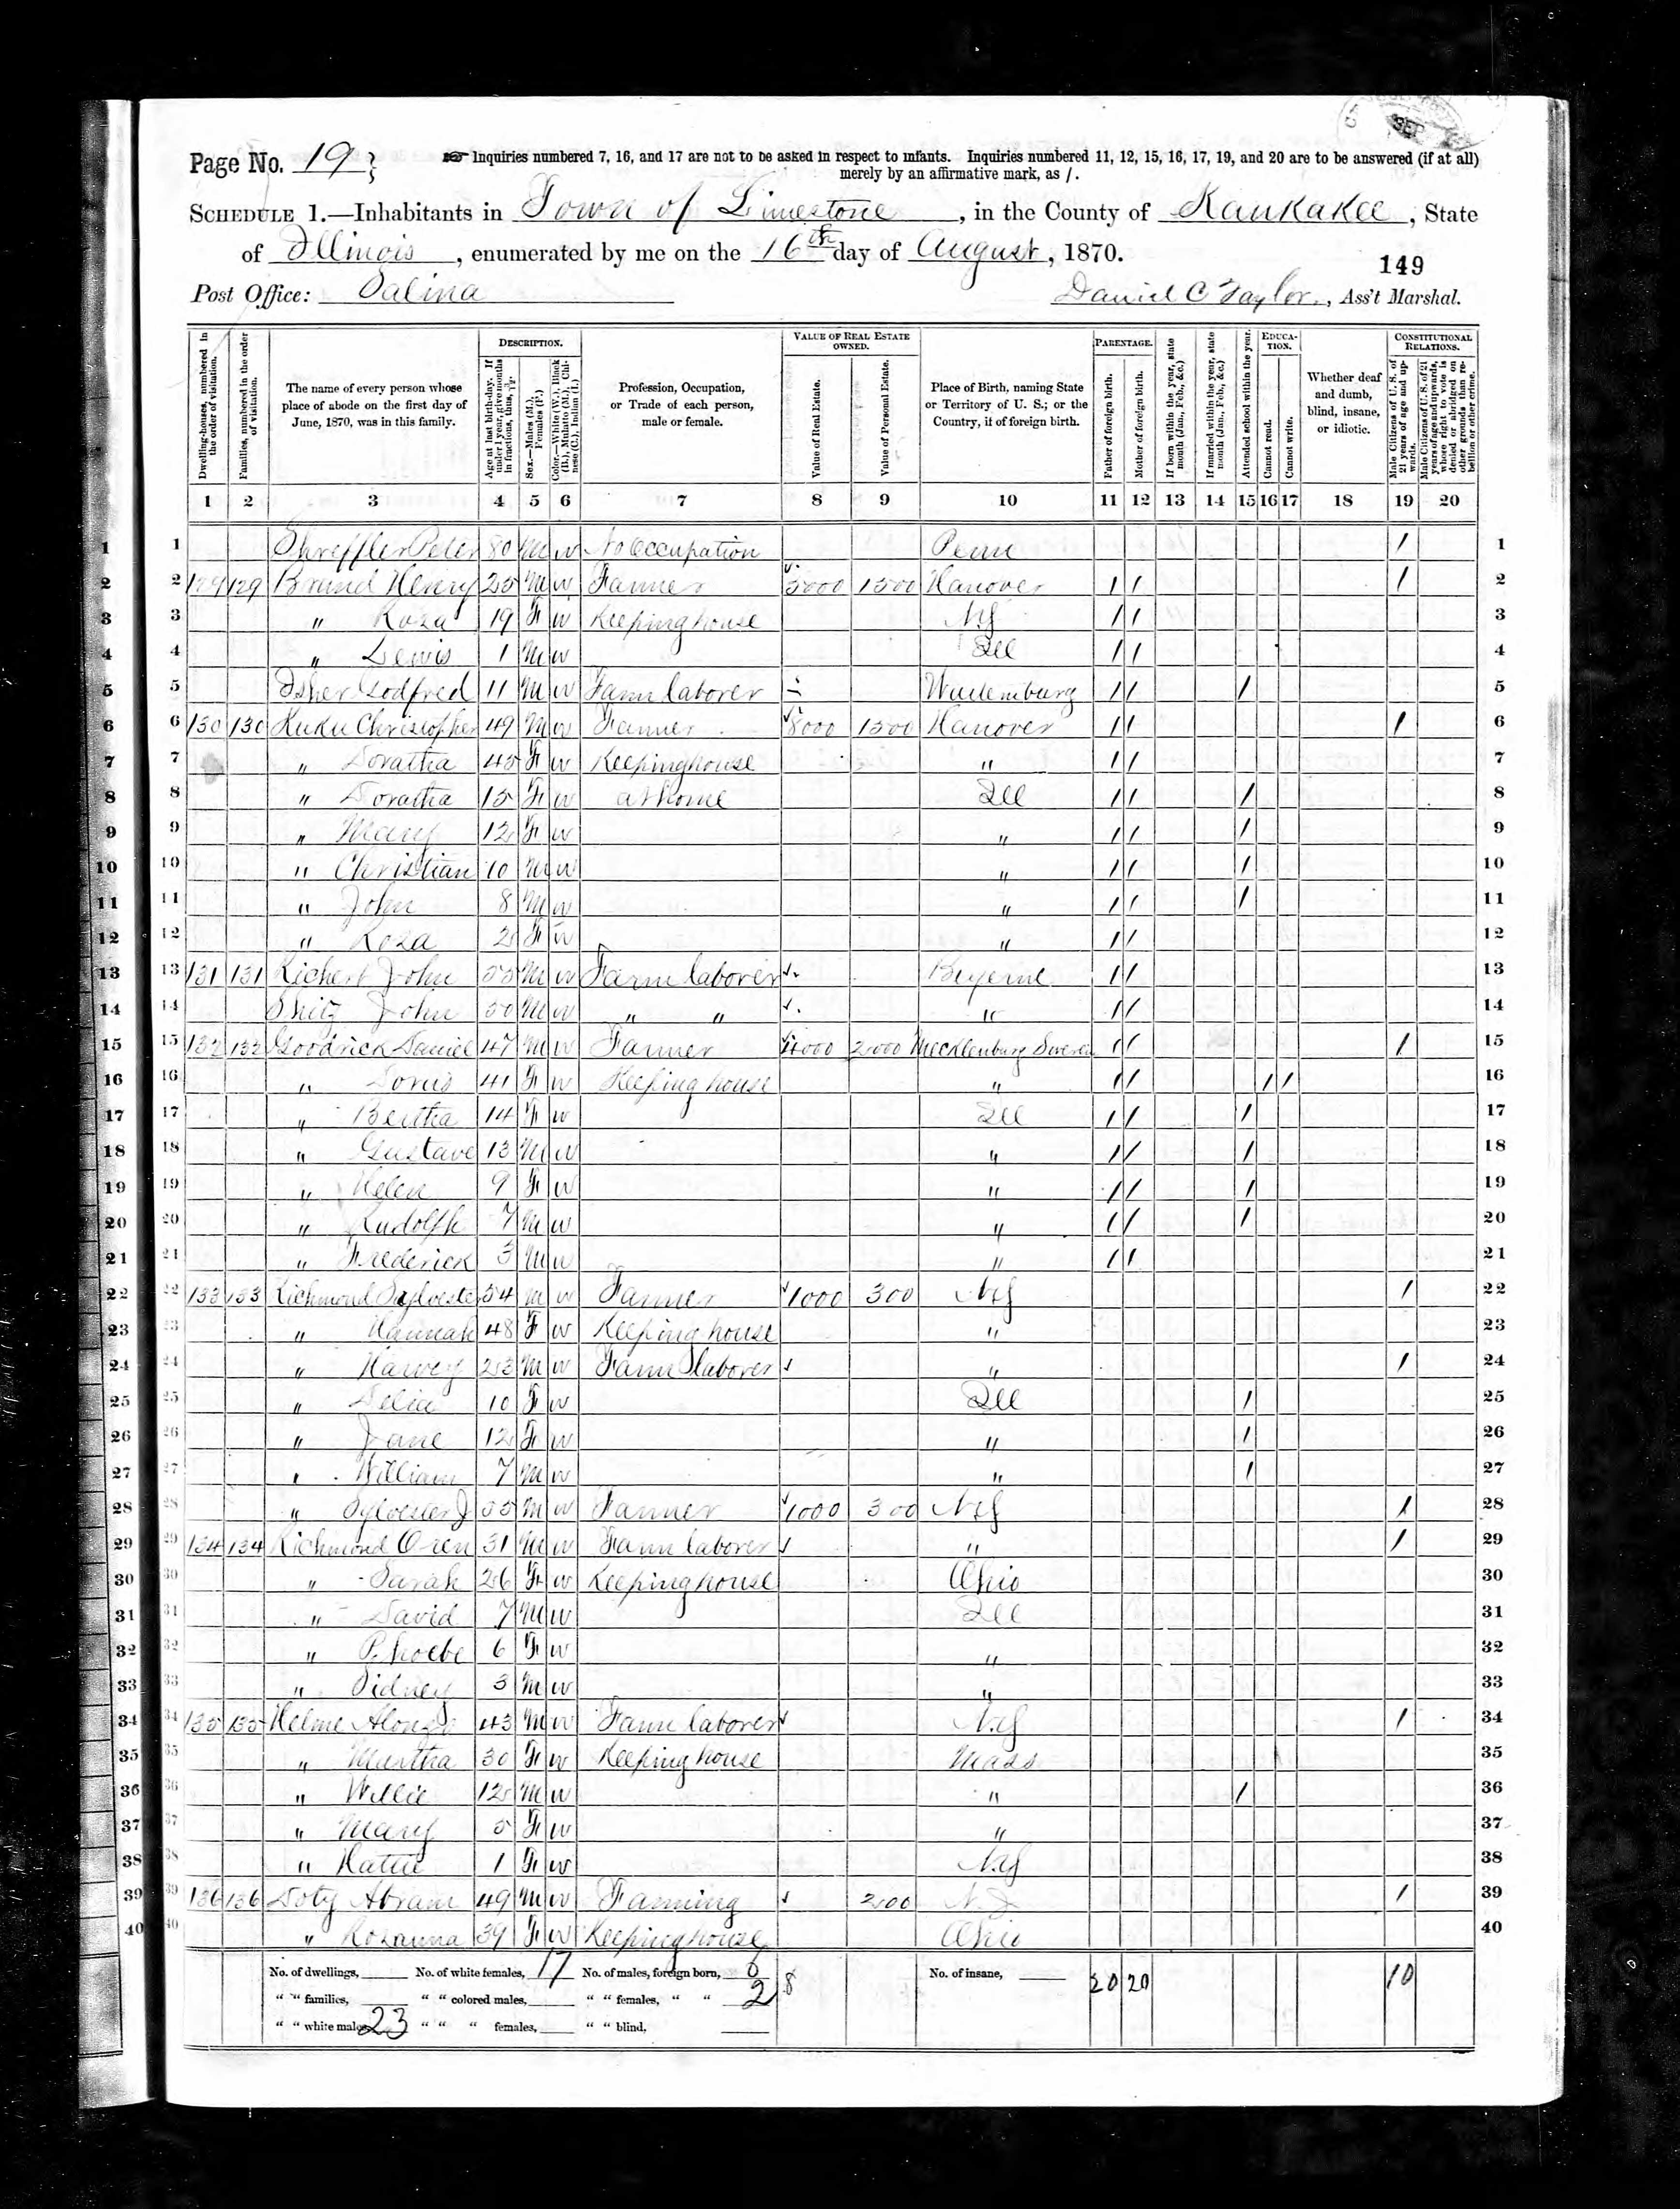 Page No. 19
Inquiries numbered 7, 16, and 17 are not to be asked in respect to infants. Inquiries numbered 11, 12, 15, 16, 17, 19, and 20 are to be answered (if at all)
merely by an affirmative mark, as /.
SCHEDULE 1.—Inhabitants in Town of Limestone, in the County of Kankakee, State
of Illinois, enumerated by me on the 16th day of August, 1870.
149
Post Office: Salina Daniel C Taylor, Ass't Marshal.
Dwelling-houses, numbered in the order of visitation.
Families, numbered in the order of visitation.
The name of every person whose place of abode on the first day of June, 1870, was in this family.
DESCRIPTION.
Age at last birth-day. If under 1 year, give months in fractions, thus, 3/12.
Sex.—Males (M.), Females (F.)
Color.—White (W.), Black (B.), Mulatto (M.), Chinese (C.), Indian (I.)
Profession, Occupation, or Trade of each person, male or female.
VALUE OF REAL ESTATE OWNED.
Value of Real Estate.
Value of Personal Estate.
Place of Birth, naming State or Territory of U. S.; or the Country, if of foreign birth.
PARENTAGE.
Father of foreign birth.
Mother of foreign birth.
If born within the year, state month (Jan., Feb., &c.)
If married within the year, state month (Jan., Feb., &c.)
Attended school within the year.
EDUCATION.
Cannot read.
Cannot write.
Whether deaf and dumb, blind, insane, or idiotic.
CONSTITUTIONAL RELATIONS.
Male Citizens of U. S. of 21 years of age and upwards.
Male Citizens of U. S. of 21 years of age and upwards, where right to vote is denied or abridged on other grounds than rebellion or other crime.
1 2 3 4 5 6 7 8 9 10 11 12 13 14 15 16 17 18 19 20
1 Shreffler Peter 80 M W No Occupation Penn / 1
2 129 129 Brund Henry 25 M W Farmer 5000 1500 Hanover / / / 2
3 " Roza 19 F W Keeping house N.Y / / 3
4 " Lewis 1 M W Ill / / 4
5 Godfred 11 M W Farm laborer / / / 5
6 130 130 Christopher 49 M W Farmer 8000 1500 Hanover / / / 6
7 " Doratha 45 F W Keeping house " / / 7
8 " Doratha 15 F W at home Ill / / / 8
9 " Mary 12 F W " / / / 9
10 " Christian 10 M W " / / / 10
11 " John 8 M W " / / / 11
12 " Roza 2 F W " / / 12
13 131 131 Richert John 55 M W Farm laborer Beyerne / / 13
14 John 50 M W " " " / / 14
15 132 132 Goodrick Daniel 47 M W Farmer 4000 2000 Mecklenburg / / / 15
16 " Doris 41 F W Keeping house " / / / / 16
17 " Bertha 14 F W Ill / / / 17
18 " Gustave 13 M W " / / / 18
19 " Helen 9 F W " / / / 19
20 " Rudolph 7 M W " / / / 20
21 " Frederick 3 M W " / / 21
22 133 133 Richmond Sylvester 54 M W Farmer 1000 300 N.Y / 22
23 " Hannah 48 F W Keeping house " 23
24 " Harvey 23 M W Farm laborer " / 24
25 " Delia 10 F W Ill / 25
26 " Jane 12 F W " / 26
27 " William 7 M W " / 27
28 " Sylvester J 55 M W Farmer 1000 300 N.Y / 28
29 134 134 Richmond Oren 31 M W Farm laborer " / 29
30 " Sarah 26 F W Keeping house Ohio 30
31 " David 7 M W Ill 31
32 " Phoebe 6 F W " 32
33 " Sidney 3 M W " 33
34 135 135 Helme Alonzo 43 M W Farm laborer N.Y / 34
35 " Martha 30 F W Keeping house Mass 35
36 " Willie 12 M W " / 36
37 " Mary 5 F W " 37
38 " Hattie 1 F W N.Y 38
39 136 136 Doty Abram 49 M W Farming 200 N.J / 39
40 " Rozanna 39 F W Keeping house Ohio 40
No. of dwellings, No. of white females, 17 No. of males, foreign born, 6 8 No. of insane, 20 20 10
" " families, " " colored males, " " females, " " 2
" " white males, 23 " " " females, " " blind,